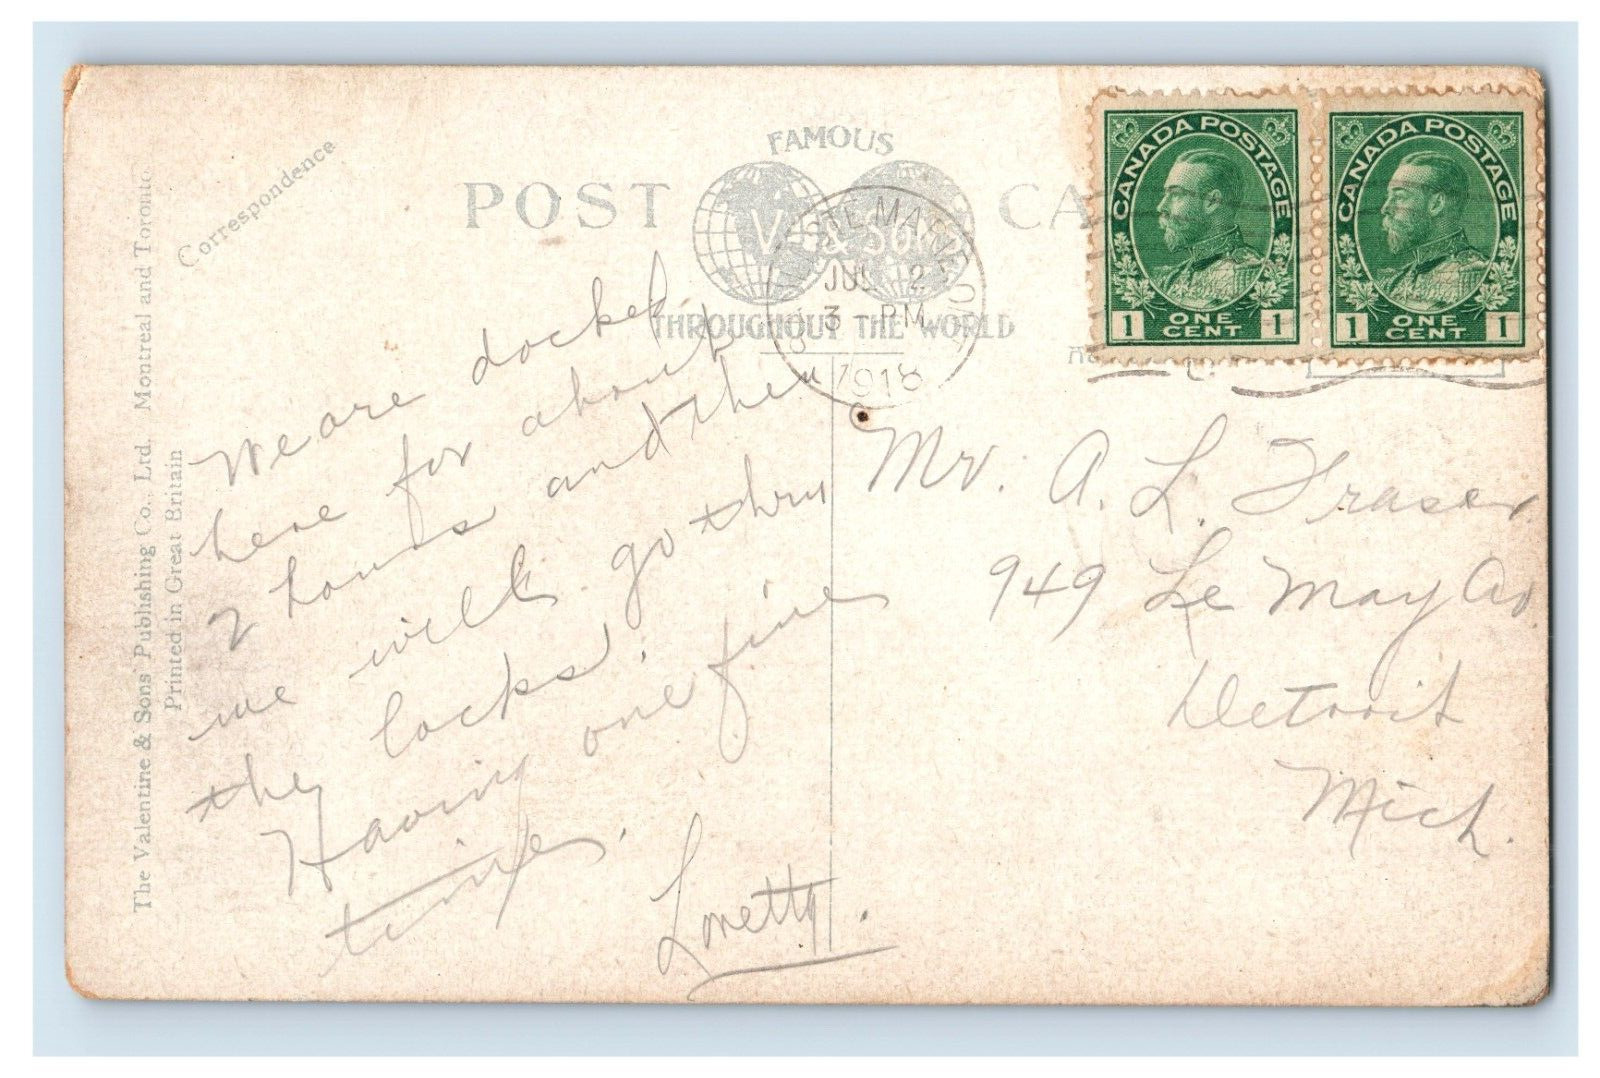 The Valentine & Sons' Publishing Co., Ltd. Montreal and Toronto.
Printed in Great Britain
Correspondence
POST CA
FAMOUS
V. & Sons
THROUGHOUT THE WORLD
STE MARIE
JUL 2
3 - PM
1918
CANADA POSTAGE
1 ONE CENT 1
CANADA POSTAGE
1 ONE CENT 1
We are docked
here for about
2 hours and then
we will go thru
the locks.
Having one fine
time.
Loretta.
Mr. A. L. Fraser
949 Le May Av
Detroit
Mich.